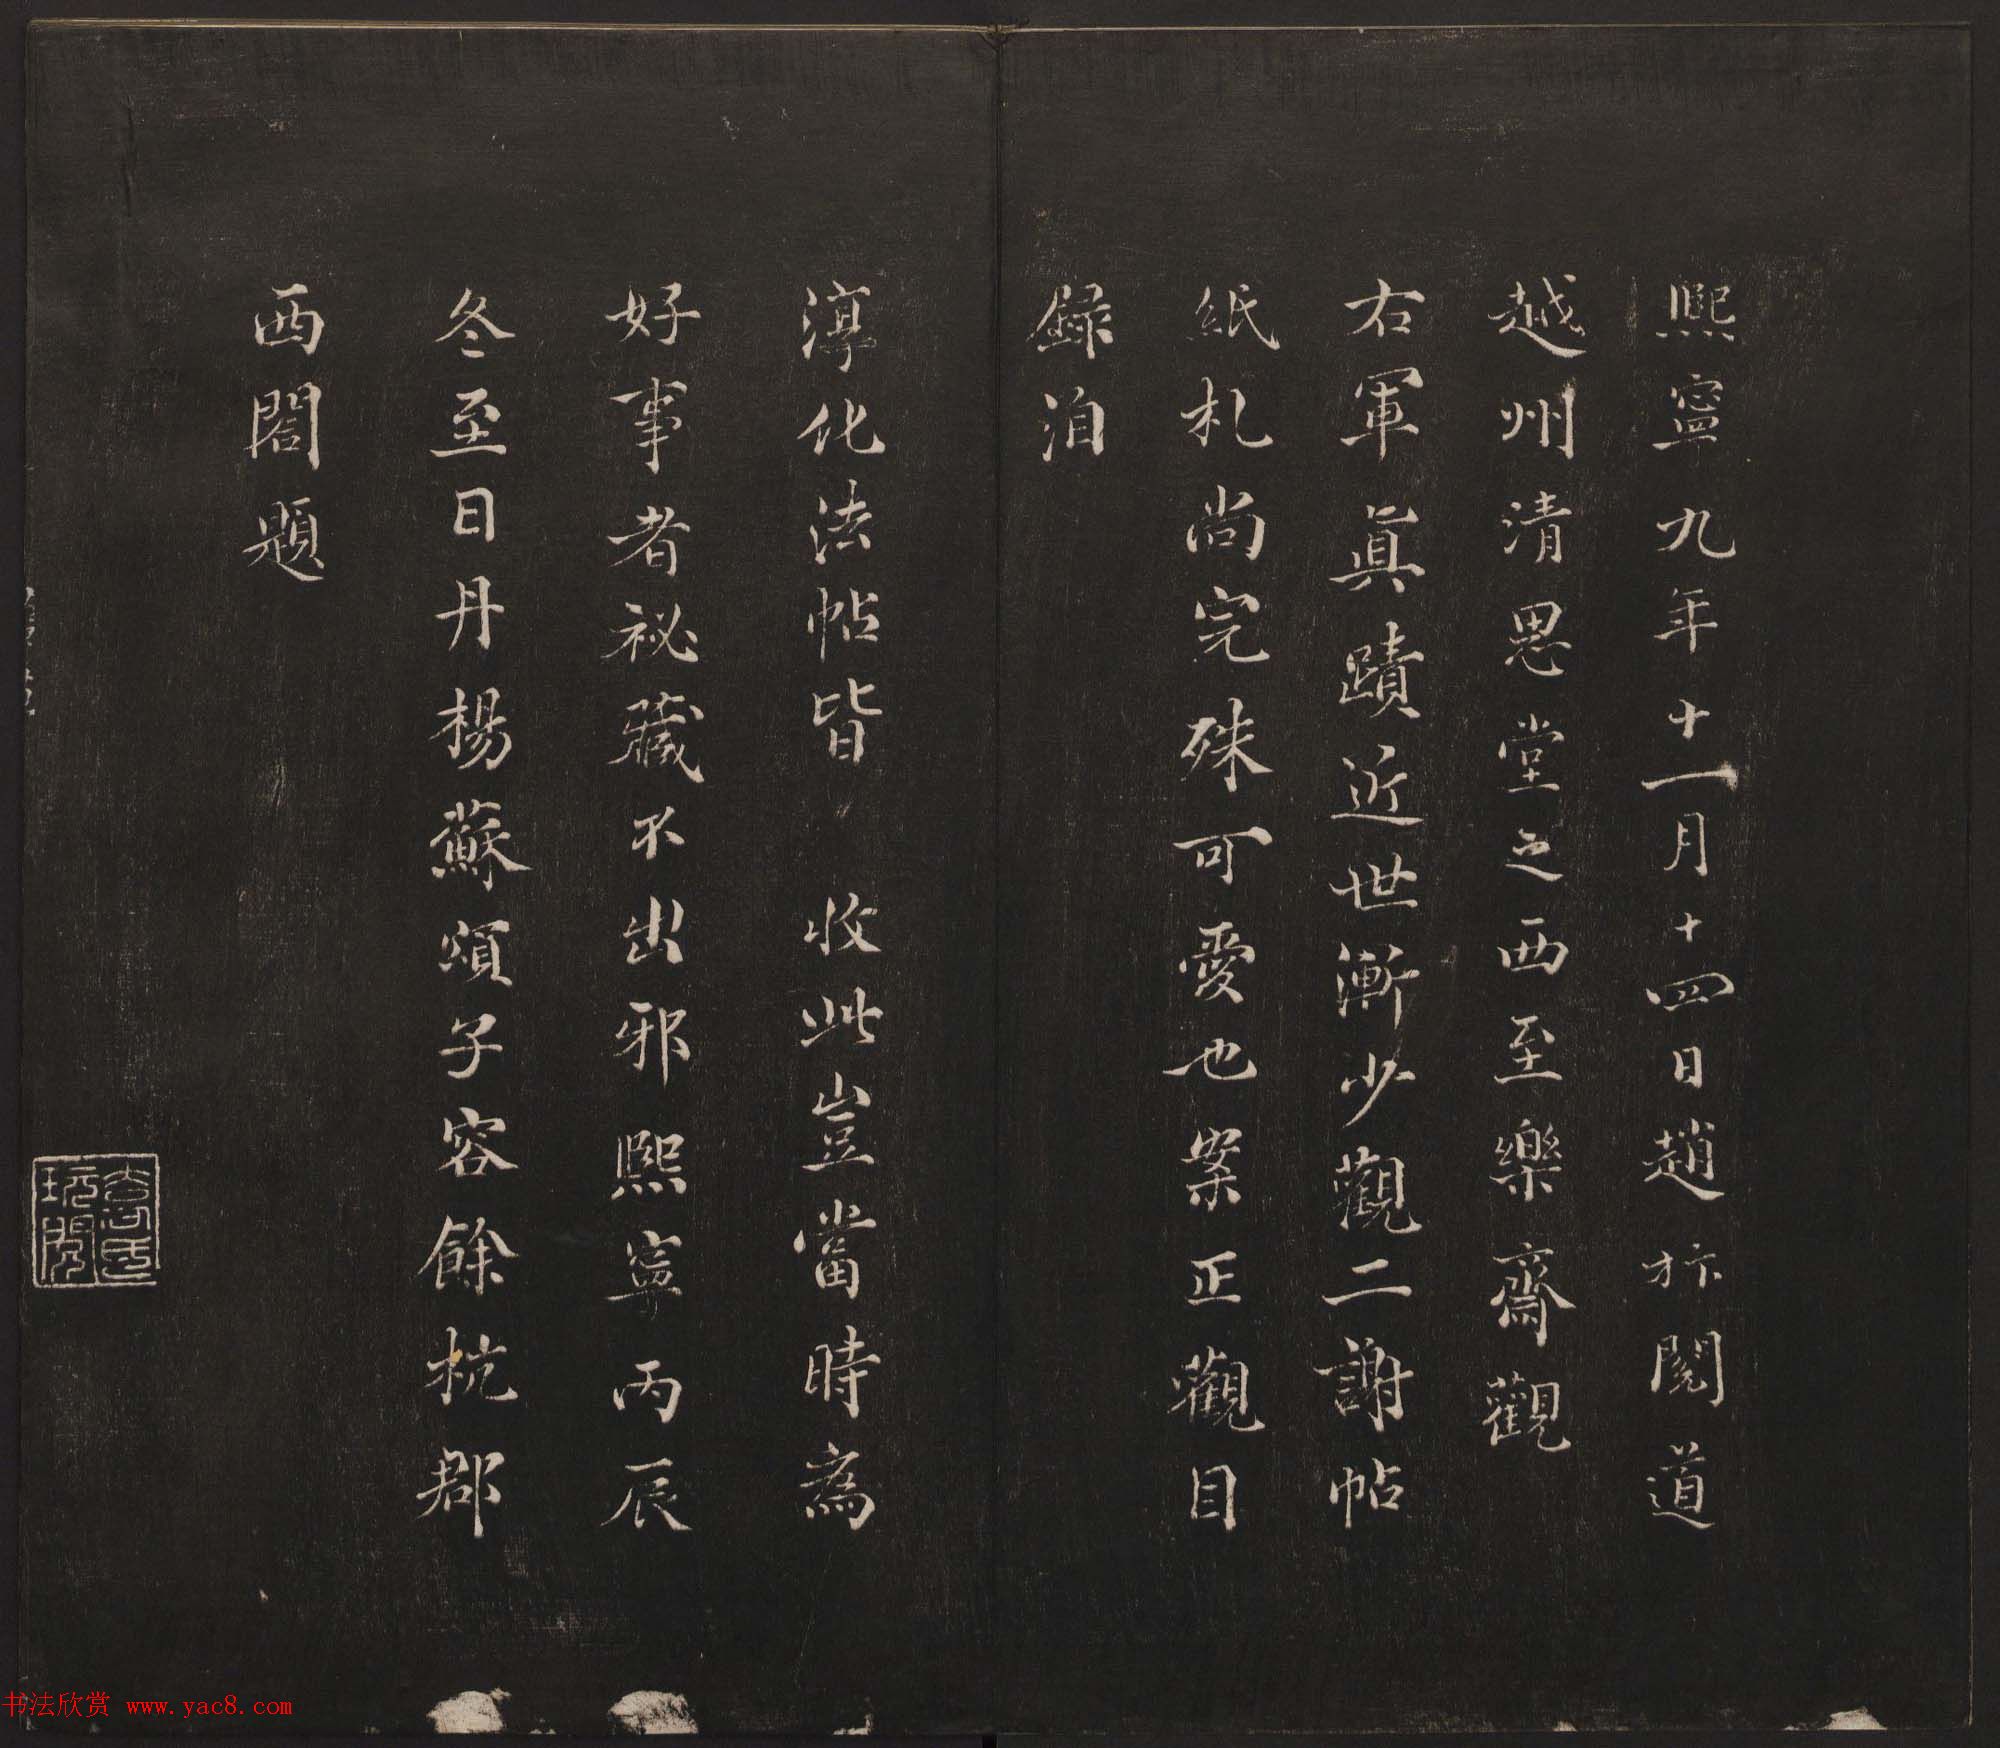 熙寧九年十一月十四日趙抃閱道
越州清思堂之西至樂齋觀
右軍真蹟近世漸少觀二謝帖
紙札尚完殊可愛也案正觀目
録洎
淳化法帖皆 收此豈當時為
好事者祕藏不出邪熙寧丙辰
冬至日丹楊蘇頌子容餘杭郡
西閣題
书法欣赏 www.yac8.com